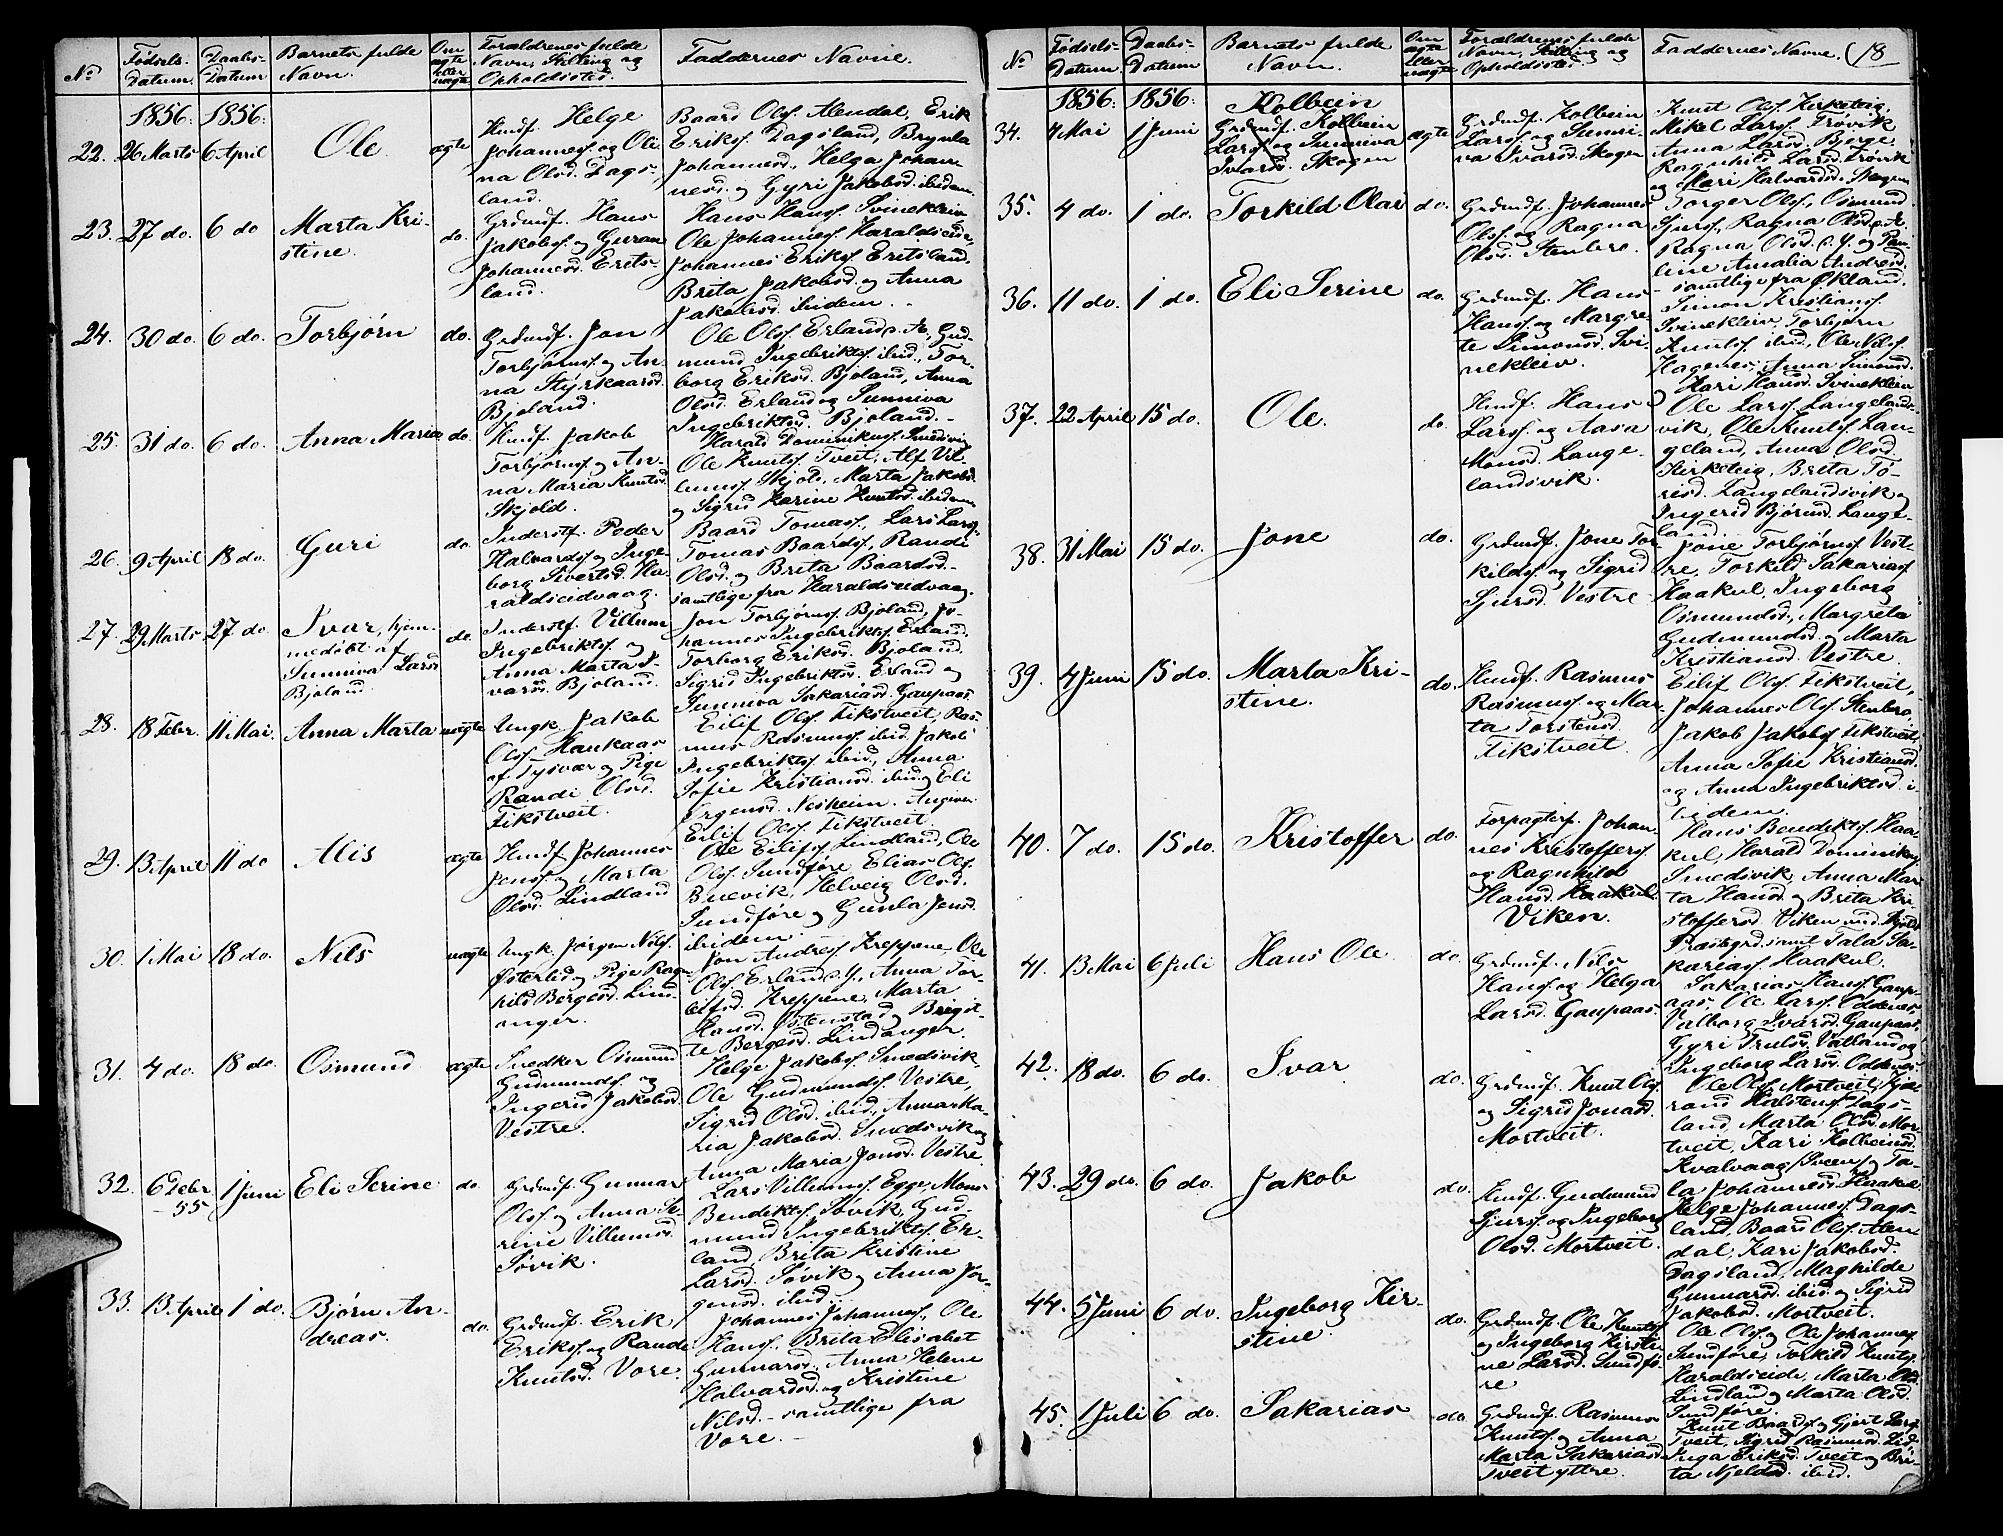 No
Fødsels-
Datum.
Daabs-
Datum
Barnets fulde
Navn.
Om
ægte
eller
uægte
Forældrenes fulde
Navn, Stilling og
Opholdssted.
Faddernes Navne.
1856. 1856.
22. 26 Marts 6 April Ole ægte
Husmf. Helge
Johannesf. og Ole
na Olsd. Dags-
land.
Baard Olsf. Alendal, Erik
Eriksf. Dagsland, Brynla
Johannesd., Helga Johan
nesd. og Gyri Jakobsd. ibidem.
23. 27 do. 6 do Marta Kri-
stine. do.
Grdmdf. Hans
Jakobsf. og Guran
Johannesd. Erets-
land.
Hans Hansf. Svinekleiv
Ole Johannesf. Haraldseide,
Johannes Eriksf. Eritsland.
Brita Jakobsd. og Anna
Jakobsd. ibidem.
24. 30 do. 6 do. Torbjørn do.
Grdmdf. Jon
Torbjørnsf. og An-
na Styrkaarsd.
Bjoland.
Ole Olsf. Erland d. Æ., Gud-
mund Ingebriktsf. ibid., Tor-
borg Eriksd. Bjoland, Anna
Olsd. Erland og Sunniva
Ingebriktsd. Bjoland.
25. 31 do. 6 do. Anna Maria do.
Husmf. Jakob
Torbjørnsf. og An-
na Maria Knutsd.
Skjold.
Harald Dominikusf. Smedsvig
Ole Knutsf. Tveit, Alf Vil-
lumsf. Skjold, Marta Jakobsd.
og Sigrid Karine Knutsd. ibidem
26. 9 April 18 do. Guri do.
Inderstf. Peder
Halvardsf. og Inge-
borg Sivertsd. Ha-
raldseidvaag.
Baard Tomasf., Lars Larsf.
Tomas Baardsf., Randi
Olsd. og Brita Baardsd.
samtlige fra Haraldseidvaag.
27. 29 Marts 27 do. Ivar, hjem-
medøbt af
Sunniva Larsd
Bjoland. do.
Inderstf. Villum
Ingebriktsf. og
Anna Marta I-
varsd. Bjoland.
Jon Torbjørnsf. Bjoland, Jo-
hannes Ingebriktsf. Erland.
Torborg Eriksd. Bjoland.
Sigrid Ingebriktsd. Erland og
Sunniva Sakariasd. Gaupaas
28. 18 Febr. 11 Mai. Anna Marta uægte
Ungk. Jakob
Olsf. Haukaas
af Tysvær og Pige
Randi Olsd.
Fikstveit.
Eilif Olsf. Fikstveit, Ras-
mus Rasmusf. ibid. Jakob
Ingebriktsf. ibid., Anna
Sofie Kristiansd. ibid. og Eli
Ergensd. Nesheim. Angiver
Eilif Olsf. Fikstveit.
29. 13 April 11 do Alis ægte
Husmf. Johannes
Jensf. og Marta
Olsd. Lindland
Ole Eilifsf. Lindland, Ole
Olsf. Sundføre Elias Olsf.
Buevik, Helveig Olsd.
Sundføre og Gunla Jensd.
ibidem.
30. 1 Mai 18 do. Nils uægte
Ungk. Jørgen Nilsf.
Østerlid og Pige Ragn-
hild Bergesd. Lind-
anger.
Jon Andresf. Kreppene, Ole
Olsf. Erland d. Y., Anna Tor-
leifsd. Kreppene, Marta
Hansd. Østenstad og Brigit-
te Bergesd. Lindanger.
31. 4 do. 18 do. Osmund ægte
Snedker Osmund
Gudmundsf. og
Ingerid Jakobsd.
Vestre.
Helge Jakobsf. Smedsvik
Ole Gudmundsf. Vestre,
Sigrid Olsd. ibid., Anna Ma-
ria Jakobsd. Smedsvik og
Anna Maria Jonsd. Vestre
32. 6 Febr
-55 1 Juni Eli Serine do.
Grdmdf. Gunnar
Olsf. og Anna Se-
rine Villumsd.
Søvik.
Lars Villumsf. Egge, Mons
Bendiktsf. Søvik, Gud-
mund Ingebriktsf. Er-
land, Brita Kristine
Larsd. Søvik og Anna Jør-
gensd. ibid.
33. 13 April 1 do. Bjørn An-
dreas. do.
Grdmdf. Erik
Eriksf. og Rande
Knutsd. Vore.
Johannes Johannesf., Ole
Hansf. Brita Elisabet
Gunnarsd. Anna Helene
Halvardsd. og Kristine
Nilsd. - samtlige fra
Vore.
No
Fødsels-
Datum.
Daabs-
Datum
Barnets fulde
Navn.
Om
ægte
eller
uægte
Forældrenes fulde
Navn, Stilling og
Opholdssted.
Faddernes Navne.
18
1856. 1856.
34. 4 Mai 1 Juni Kolbein
Grdmdf. Kolbein
Larsf. og Sunneva
Ivarsd. Skogen ægte
Grdmdf. Kolbein
Larsf. og Sunni-
va Ivarsd. Skogen
Knut Olsf. Kirketeig,
Mikel Larsf. Trøvik
Anna Larsd. Bjerge
Ragnhild Larsd. Trøvik
og Mari Halvardsd. Skogen
35. 4 do. 1 do. Torkild Olai do.
Grdmdf. Johannes
Olsf. og Ragna
Olsd. Stenbro.
Torger Olsf., Osmund
Sjursf., Ragna Olsd. d. Æ.
Ragna Olsd. d. Y. og Pau-
line Amalia Andresd.
- samtlige fra Økland.
36. 11 do. 1 do. Eli Serine do.
Grdmdf. Hans
Hansf. og Margre-
te Simonsd. Svi-
nekleiv.
Simon Kristiansf.
Svinekleiv, Torbjørn
Knutsf. ibid., Ole Nilsf.
Hagenes, Anna Simonsd.
Kari Hansd. Svinekleiv
37. 22 April 15 do. Ole. do.
Husmf. Hans
Larsf. og Aasa
Monsd. Lange-
landsvik.
Ole Larsf. Langelands-
vik, Ole Knutsf. Lan-
geland, Anna Olsd.
Kirketeig, Brita To-
resd. Langelandsvik og
Ingerid Bjørnsd. Lange-
land.
38. 31 Mai 15 do. Jone do.
Grdmdf. Jone Tor-
kildsf. og Sigrid
Sjursd. Vestre
Jone Torbjørnsf. Vest-
re, Torkild Sakariasf
Haakul, Ingeborg
Osmundsd., Margreta
Gudmundsd. og Marta
Kristiansd. Vestre.
39. 4 Juni 15 do. Marta Kri-
stine. do.
Husmf. Rasmus
Rasmusf. og Mar-
ta Torstensd.
Fikstveit.
Eilif Olsf. Fikstveit,
Johannes Olsf. Stenbro
Jakob Jakobsf. Fikstveit
Anna Sofie Kristiansd.
og Anna Ingebriktsd. i-
bidem.
40. 7 do. 15 do. Kristoffer do.
Forpagterf. Johan-
nes Kristoffersf.
og Ragnhild
Hansd. Haakul.
Viken.
Hans Bendiktsf. Haa-
kul, Harald Dominikusf.
Smedsvik, Anna Mar-
ta Hansd. og Brita Kri-
stoffersd. Viken und. Skjolds
Præstegrd. samt Tala Sa-
kariasf. Haakul.
41. 13 Mai 6 Juli Hans Ole do.
Grdmdf. Nils
Hansf. og Helga
Larsd. Gaupaas.
Sakarias Hansf. Gaup-
aas, Ole Larsf. Oddenes
Valborg Ivarsd. Gaupaas,
Gyri Trulsd. Valland og
Ingeborg Larsd. Oddenes
42. 18 do. 6 do. Ivar do.
Grdmdf. Knut Olsf
og Sigrid Jonasd.
Mortveit.
Ole Olsf. Mortveit, Tjøe-
rand Halstensf. Dags-
land, Marta Olsd. Mor-
tveit, Kari Kolbeinsd.
Kvalvaag (Sveen) og Ta-
la Johannesd. Haakul
43. 29 do. 6 do. Jakob do.
Husmf. Gudmund
Sjursf. og Ingeborg
Olsd. Mortveit.
Helge Johannesf. Dags-
land, Baard Olsf. Alen-
dal, Kari Jakobsd.
Dagsland, Maghilde
Gunnarsd. ibid og Sigrid
Jakobsd. Mortveit.
44. 5 Juni 6 do. Ingeborg Kir-
stine. do.
Grdmdf. Ole Knutsf
og Ingeborg Kirsti-
ne Larsd. Sundfø-
re
Ole Olsf. og Ole Johannesf.
Sundføre, Torkild Knutsf.
Haraldseide, Marta Olsd.
Lindland og Marta Olsd.
Sundføre.
45. 1 Juli 6 do. Sakarias do.
Grdmdf. Rasmus
Knutsf. og Anna
Marta Sakariasd.
Tveit yttre.
Knut Baardsf. og Gjert Larsf.
Tveit, Sigrid Rasmusd. Lid
Inga Eriksd. Tveit og Bri-
ta Njeldsd. ibid.